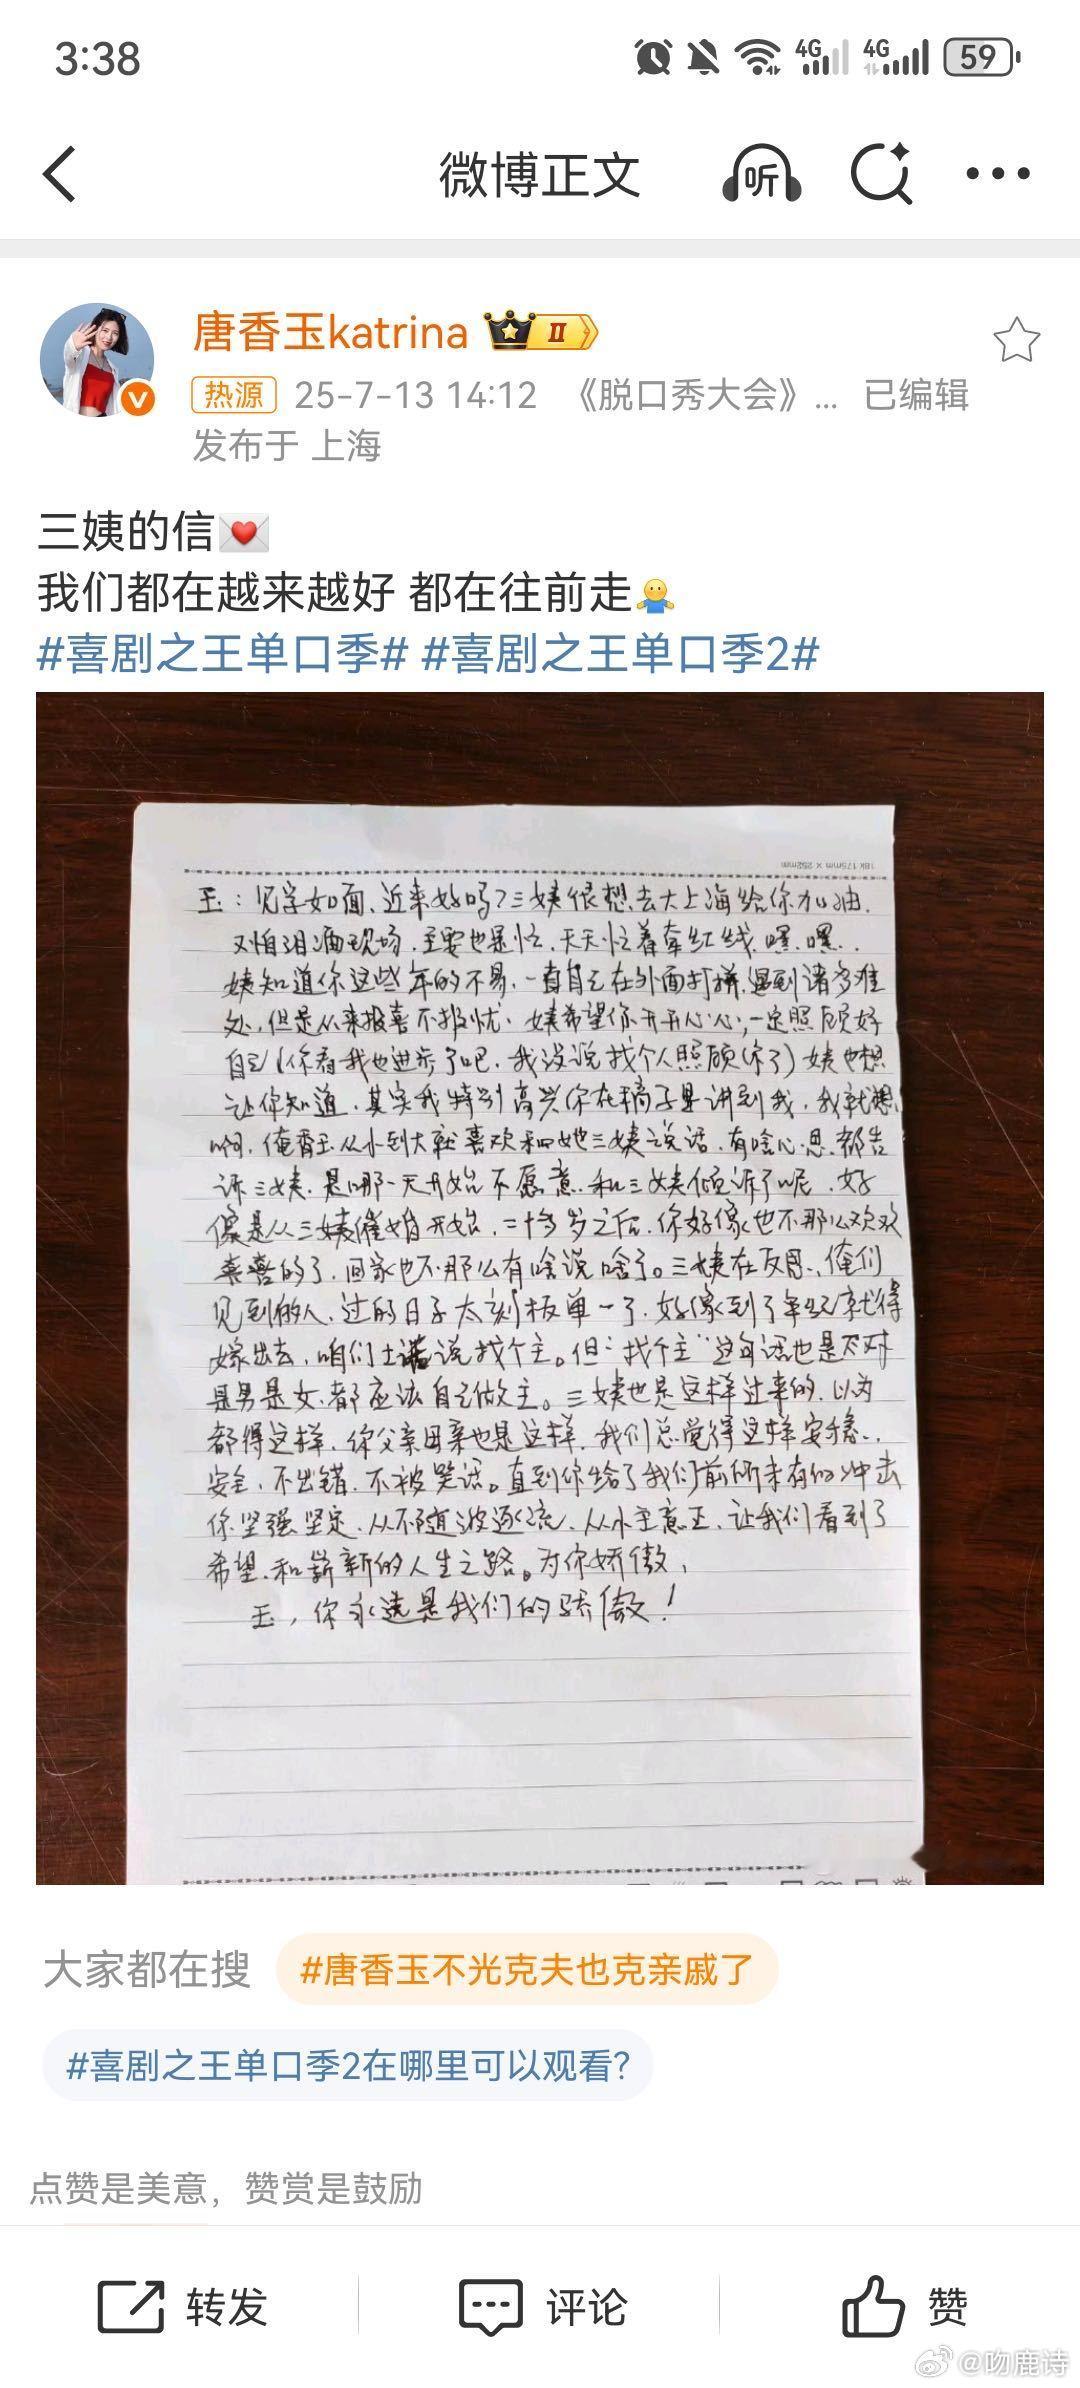 3:38
4G 4G 59
微博正文
听
唐香玉katrina II
热源 25-7-13 14:12 《脱口秀大会》... 已编辑
发布于 上海
三姨的信
我们都在越来越好 都在往前走
#喜剧之王单口季# #喜剧之王单口季2#
18K 175mm × 252mm
玉：见字如面、近来好吗?三姨很想去大上海给你加油.
又怕泪洒现场、主要也是忙、天天忙着牵红线、嘿、嘿..
姨知道你这些年的不易、一直自己在外面打拼、遇到诸多难
处、但是从来报喜不报忧、姨希望你开开心心、一定照顾好
自己(你看我也进步了吧、我没说找个人照顾你了)姨也想
让你知道、其实我特别高兴你在稿子里讲到我、我就想
啊、俺香玉从小到大就喜欢和她三姨说话、有啥心思、都告
诉三姨、是哪一天开始不愿意、和三姨倾诉了呢、好
像是从三姨催婚开始、二十多岁之后、你好像也不那么欢欢
喜喜的了、回家也不那么有啥说啥了。三姨在反思、俺们
见到的人、过的日子太刻板单一了、好像到了年纪就得
嫁出去、咱们土话说找个主。但"找个主"这句话也是不对
是男是女、都应该自己做主。三姨也是这样过来的、以为
都得这样、你父亲母亲也是这样、我们总觉得这样安稳、
安全、不出错、不被笑话。直到你给了我们前所未有的冲击
你坚强坚定、从不随波逐流、从小主意正、让我们看到了
希望、和崭新的人生之路。为你骄傲、
玉，你永远是我们的骄傲！
大家都在搜 #唐香玉不光克夫也克亲戚了
#喜剧之王单口季2在哪里可以观看?
点赞是美意，赞赏是鼓励
转发 评论 赞
@吻鹿诗